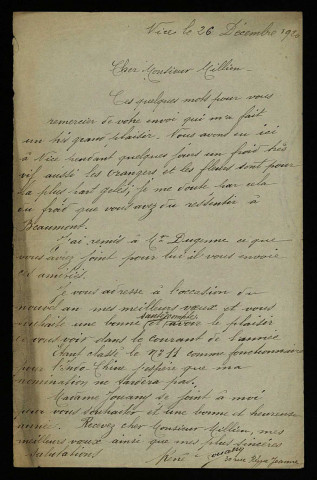 Nice le 26 Décembre
Cher Monsieur Millien
Ces quelques mots pour vous
remercier de votre envoi qui m'a fait
un très grand plaisir. Nous avons eu ici
à Nice pendant quelques jours un froid très
vif aussi les orangers et les fleurs sont pour
la plus part gelés; je me doute par cela
du froid que vous avez du ressentir à
Beaumont.
J'ai remis à Mr ce que
vous aviez joint pour lui il vous envoie
ses amitiés.
Je vous adresse à l'occasion du
nouvel an mes meilleurs vœux et vous
souhaite une bonne santé et avoir le plaisir
de vous voir dans le courant de l'année
Étant classé le No 11 comme fonctionnaire
pour l'Indo Chine j'espère que ma
nomination ne tardera pas.
Madame Jouany se joint à moi
pour vous souhaiter une bonne et heureuse
année. Recevez cher Monsieur Millien, mes
meilleurs vœux ainsi que mes plus sincères
salutations.
René Jouany